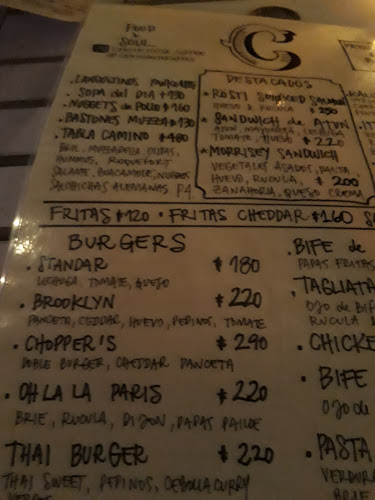 FOOD &
SOUL
C
. LANGOSTINOS PANCO $190
. SOPA del DIA $130
. NUGGETS de POLLO $160
. BASTONES MUZZA $130
. TABLA CAMINO $480
BRIE, MOZZARELLA, OLIVAS,
HUMMUS, ROQUEFORT
SALAME, GUACAMOLE, NUECES
SALCHICHAS ALEMANAS P4
DESTACADOS
* ROSTI SMOKED SALMON
HUEVO & RUCULA $250
* SANDWICH de ATUN
ATUN, MAYONESA, CEBOLLA
TOMATE, HUEVO $220
* MORRISEY SANDWICH
VEGETALES ASADOS, PALTA,
HUEVO, RUCULA, $200
ZANAHORIA, QUESO CREMA
FRITAS $120 · FRITAS CHEDDAR $160
BURGERS
. STANDAR $180
LECHUGA, TOMATE, QUESO
. BROOKLYN $220
PANCETA, CEDDAR, HUEVO, PEPINOS, TOMATE
. CHOPPER'S $290
DOBLE BURGER, CHEDDAR PANCETA
. OH LA LA PARIS $220
BRIE, RUCULA, DIJON, PAPAS PAILLE
THAI BURGER $220
THAI SWEET, PEPINOS, CEBOLLA CURRY
. BIFE de
PAPAS FRITAS
. TAGLIATA
OJO de BIFE
RUCULA
. CHICKE
. BIFE
OJO de
. PASTA
VERDURA